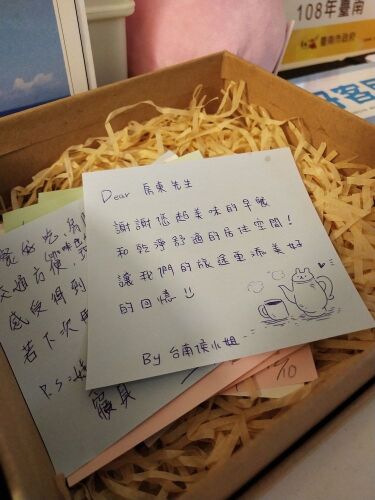 108年臺南
臺南市政府
Dear 房東先生
謝謝您超美味的早餐
和乾淨舒適的居住空間!
讓我們的旅途更添美好
的回憶
By 台南侯小姐
好吃,房
交通方便,
感受得到
若下次
P.S:
寢具
10